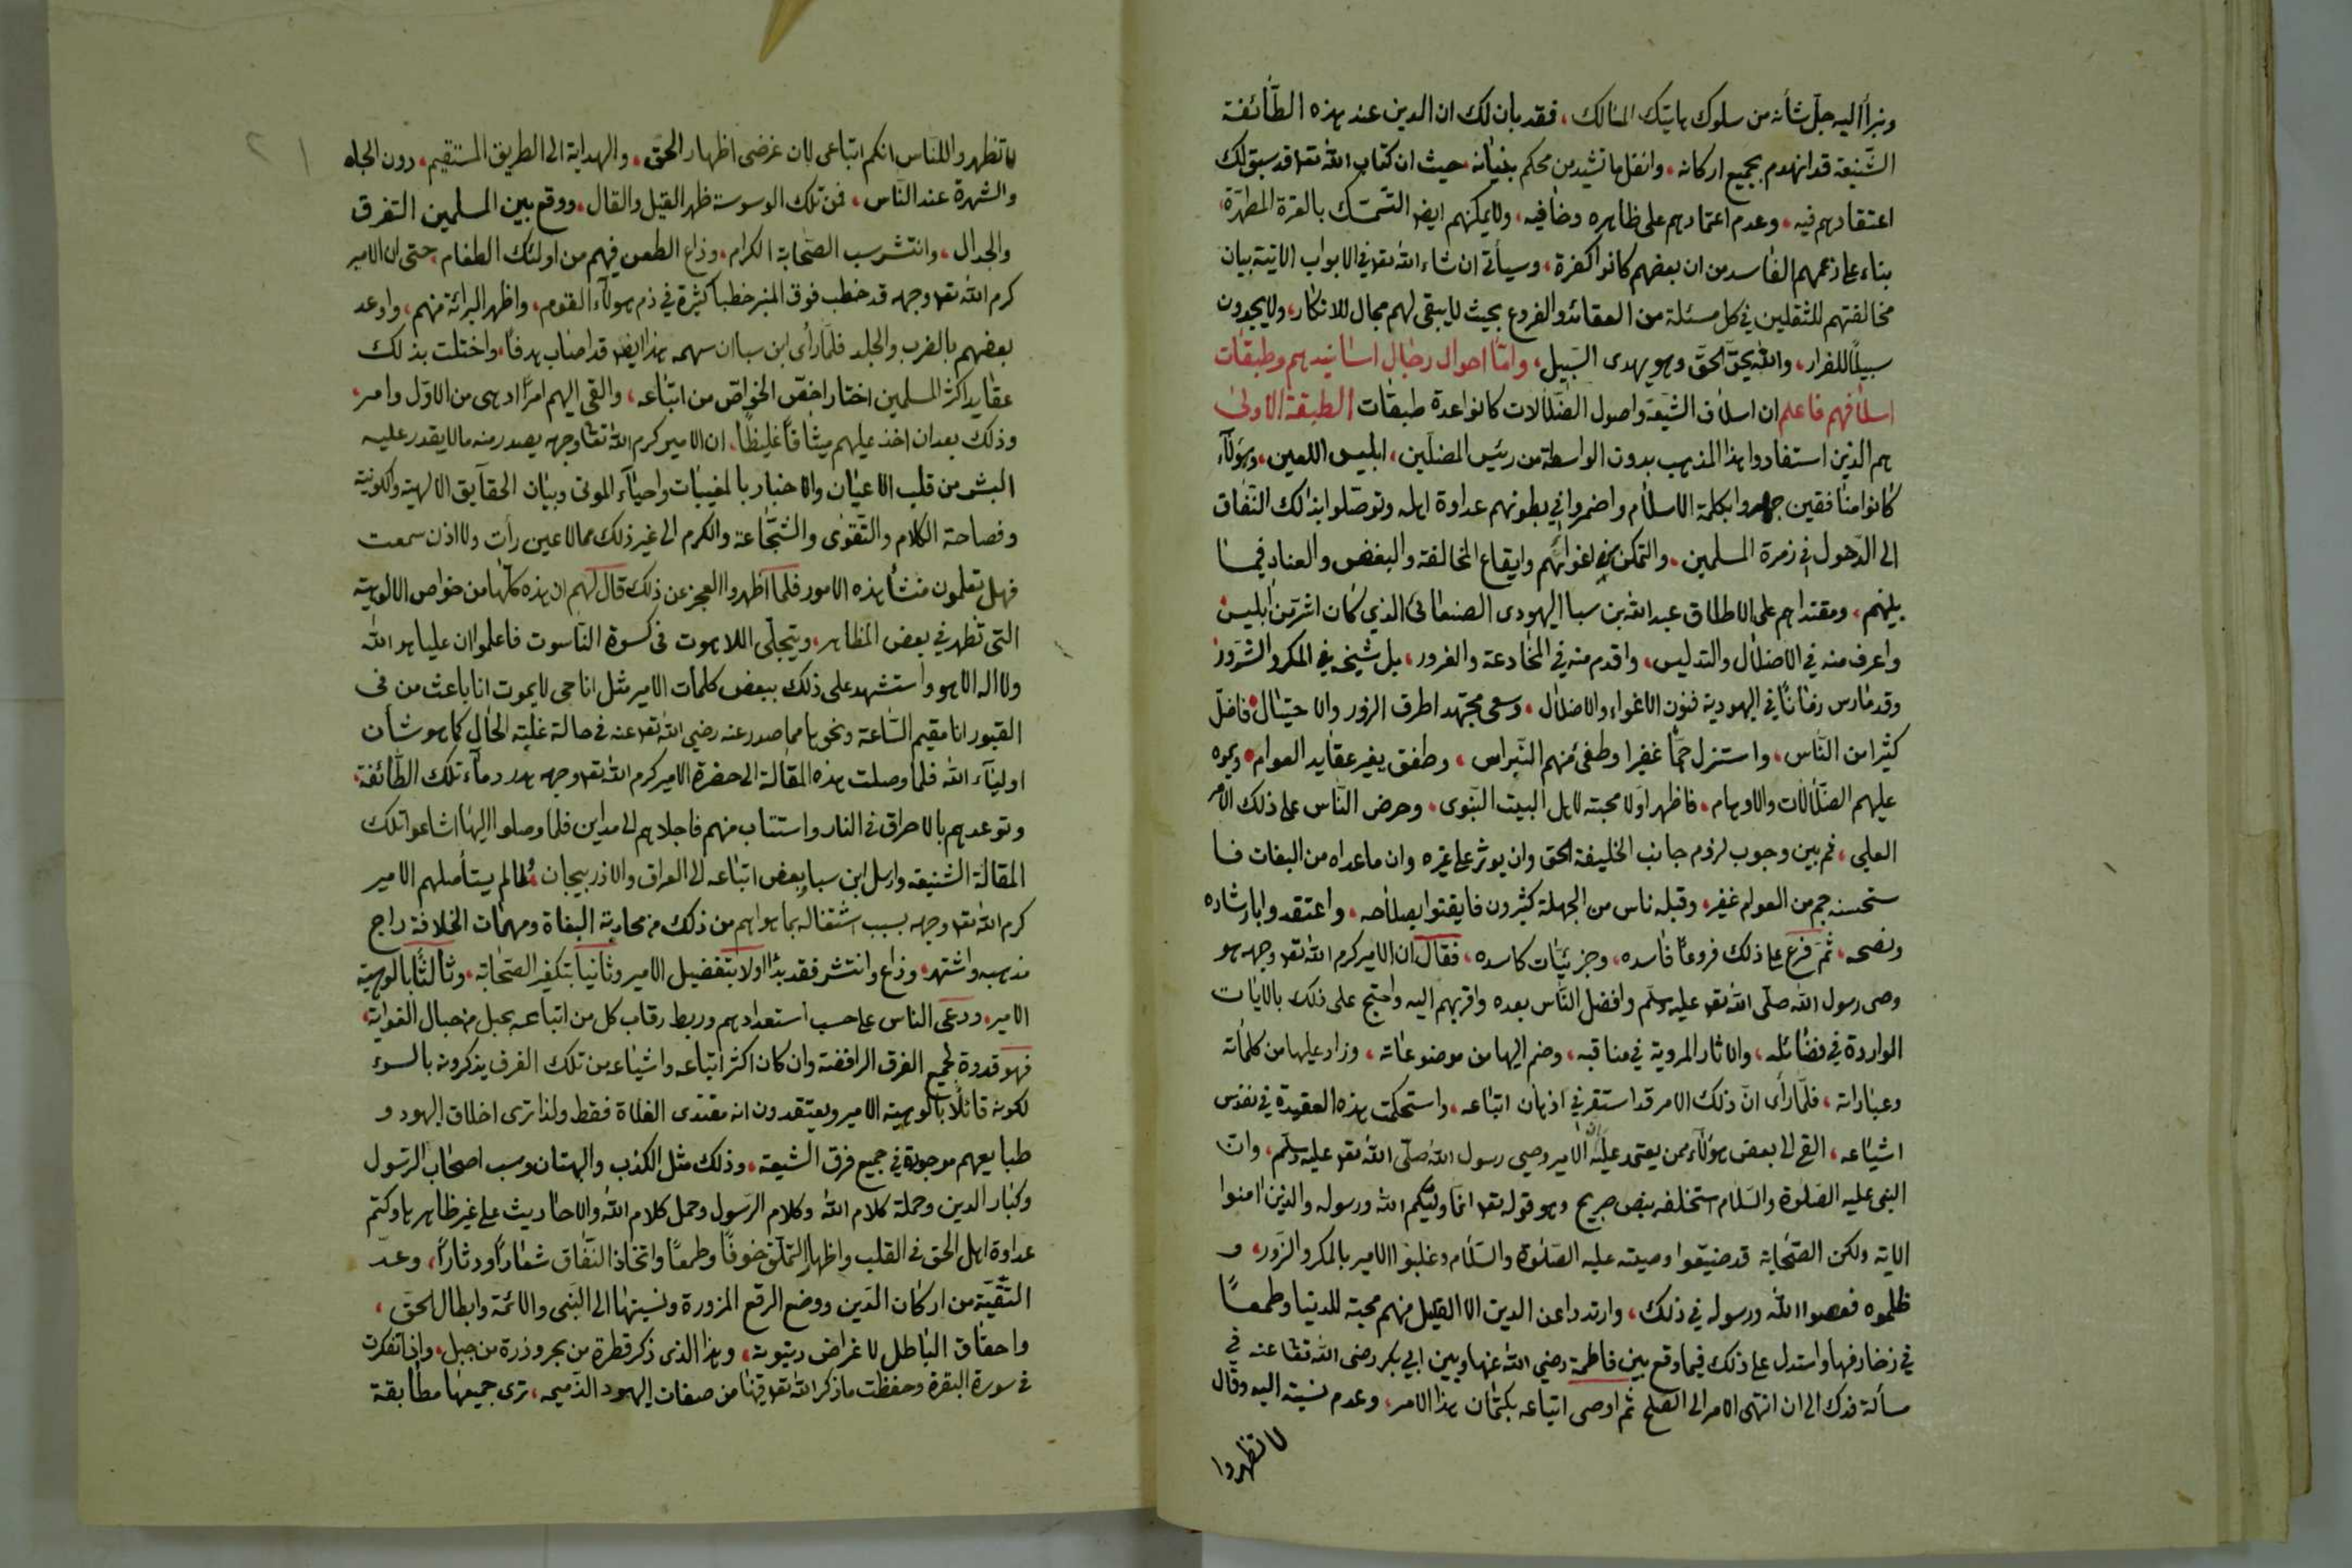 ونبرأ اليه جل شأنه من سلوك هاتيك المسالك، فقد بان لك ان الدين عند هذه الطائفة
الشنيعة قد انهدم بجميع اركانه، وانقل ما تشيد من محكم بنيانه حيث ان كتاب الله تعا قد سبق لك
اعتقادهم فيه، وعدم اعتمادهم على ظاهره وخافيه، ولا يمكنهم ايض التمسك بالعترة المطهرة
بناء على زعمهم الفاسد من ان بعضهم كانوا كفرة، وسيأتى ان شاء الله تعا في الابواب الاتية بيان
مخالفتهم للثقلين في كل مسئلة من العقائد والفروع بحيث لا يبقى لهم مجال للانكار، ولا يجدون
سبيلا للفرار، والله يحق الحق وهو يهدى السبيل، واما احوال رجال اسانيدهم وطبقات
اسلافهم فاعلم ان اسلاف الشيعة واصول الضلالات كانوا عدة طبقات الطبقة الاولى
هم الذين استفادوا هذا المذهب بدون الواسطة من رئيس المضلين، ابليس اللعين، وهؤلاء
كانوا منافقين جهروا بكلمة الاسلام واضمروا في بطونهم عداوة اهله وتوصلوا بذلك النفاق
الى الدخول في زمرة المسلمين، والتمكن في اغوائهم وايقاع المخالفة والبغض والعناد فيما
بينهم، ومقتداهم على الاطلاق عبد الله بن سبا اليهودى الصنعانى الذي كان اشر من ابليس
واعرف منه في الاضلال والتدليس، واقدم منه في المخادعة والغرور، بل شيخه في المكر والشرور
وقد مارس زمانا في اليهودية فنون الاغواء والاضلال، وسعى مجتهدا طرق الزور والاحتيال فاضل
كثيرا من الناس، واستزل جما غفيرا وطفى منهم النبراس، وطفق يغير عقايد العوام ويموه
عليهم الضلالات والاوهام، فاظهر اولا محبته لاهل البيت النبوى، وحرض الناس على ذلك الامر
العلى، ثم بين وجوب لزوم جانب الخليفة الحق وان يوثر على غيره وان ما عداه من البغات فا
ستحسنه جم من العوام غفير، وقبله ناس من الجهلة كثيرون فايقنوا بصلاحه، واعتقدوا بارشاده
ونصحه، ثم فرع على ذلك فروعا فاسده، وجزئيات كاسده، فقال ان الامير كرم الله تعا وجهه هو
وصى رسول الله صلى الله تعا عليه وسلم وافضل الناس بعده واقربهم اليه واحتج على ذلك بالايات
الواردة في فضائله، والاثار المروية في مناقبه، وضم اليها من موضوعاته، وزاد عليها من كلماته
وعباراته، فلما رأى ان ذلك الامر قد استقر في اذهان اتباعه، واستحكمت هذه العقيدة في نفوس
اشياعه، القى الى بعض هؤلاء ممن يعتمد عليه ان الامير وصي رسول الله صلى الله تعا عليه وسلم، وان
النبى عليه الصلوة والسلام استخلفه بنص صريح وهو قوله تعا انما وليكم الله ورسوله والذين امنوا
الاية ولكن الصحابة قد ضيعوا وصيته عليه الصلوة والسلام وغلبوا الامير بالمكر والزور، و
ظلموه فعصوا الله ورسوله في ذلك، وارتدوا عن الدين الا القليل منهم محبة للدنيا وطمعا
في زخارفها واستدل على ذلك فيما وقع بين فاطمة رضي الله عنها وبين ابي بكر رضى الله تعا عنه في
مسألة فدك الى ان انتهى الامر الى الصلح ثم اوصى اتباعه بكتمان هذا الامر، وعدم نسبته اليه وقال
لا تظهروا
لا تظهروا للناس انكم اتباعى لان غرضى اظهار الحق، والهداية الى الطريق المستقيم، دون الجاه
والشهرة عند الناس، فمن تلك الوسوسة ظهر القيل والقال، ووقع بين المسلمين التفرق
والجدال، وانتشر سب الصحابة الكرام، وذاع الطعن فيهم من اولئك الطغام، حتى ان الامير
كرم الله تعا وجهه قد خطب فوق المنبر خطبا كثيرة في ذم هؤلاء القوم، واظهر البرائة منهم، واوعد
بعضهم بالضرب والجلد فلما رأى ابن سبا ان سهمه هذا ايض قد اصاب هدفا، واختلت بذلك
عقايد اكثر المسلمين اختار اخص الخواص من اتباعه، والقى اليهم امرا ادهى من الاول وامر،
وذلك بعد ان اخذ عليهم ميثاقا غليظا، ان الامير كرم الله تعا وجهه يصدر منه ما لا يقدر عليه
البشر من قلب الاعيان والاخبار بالمغيبات واحياء الموتى وبيان الحقايق الالهية والكونية
وفصاحة الكلام والتقوى والشجاعة والكرم الى غير ذلك مما لا عين رأت ولا اذن سمعت
فهل تعلمون منشأ هذه الامور فلما اظهروا العجز عن ذلك قال لهم ان هذه كلها من خواص الالوهية
التى تظهر في بعض المظاهر، ويتجلى اللاهوت فى كسوة الناسوت فاعلموا ان عليا هو الله
ولا اله الا هو واستشهد على ذلك ببعض كلمات الامير مثل انا حى لا يموت انا باعث من فى
القبور انا مقيم الساعة ونحوها مما صدر عنه رضي الله تعا عنه فى حالة غلبة الحال كما هو شأن
اولياء الله فلما وصلت هذه المقالة الى حضرة الامير كرم الله تعا وجهه هدر دماء تلك الطائفة،
وتوعدهم بالاحراق فى النار واستتاب منهم فاجلاهم الى مداين فلما وصلوا اليها اشاعوا تلك
المقالة الشنيعة وارسل ابن سبا بعض اتباعه الى العراق والاذربيجان، ولما لم يستأصلهم الامير
كرم الله تعا وجهه بسبب اشتغاله بما هو اهم من ذلك من محاربة البغاة ومهمات الخلافة راج
مذهبه واشتهر، وذاع وانتشر فقد بدأ اولا بتفضيل الامير وثانيا بتكفير الصحابة، وثالثا بالوهية
الامير، ودعى الناس على حسب استعدادهم وربط رقاب كل من اتباعه بحبل من حبال الغواية،
فهو قدوة لجميع الفرق الرافضة وان كان اكثر اتباعه واشياعه من تلك الفرق يذكرونه بالسوء
لكونه قائلا بالوهية الامير ويعتقدون انه مقتدى الغلاة فقط ولذا ترى اخلاق اليهود و
طبايعهم موجودة في جميع فرق الشيعة، وذلك مثل الكذب والبهتان وسب اصحاب الرسول
وكبار الدين وحملة كلام الله وكلام الرسول وحمل كلام الله والاحاديث على غير ظاهرها وكتم
عداوة اهل الحق فى القلب واظهار التملق خوفا وطمعا واتخاذ النفاق شعارا ودثارا، وعد
التقية من اركان الدين ووضع الرقع المزورة ونسبتها الى النبى والائمة وابطال الحق،
واحقاق الباطل لاغراض دنيوية، وهذا الذى ذكر قطرة من بحر وذرة من جبل، واذا تفكرت
فى سورة البقرة وحفظت ما ذكر الله تعا فيها من صفات اليهود الذميمه، ترى جميعها مطابقة